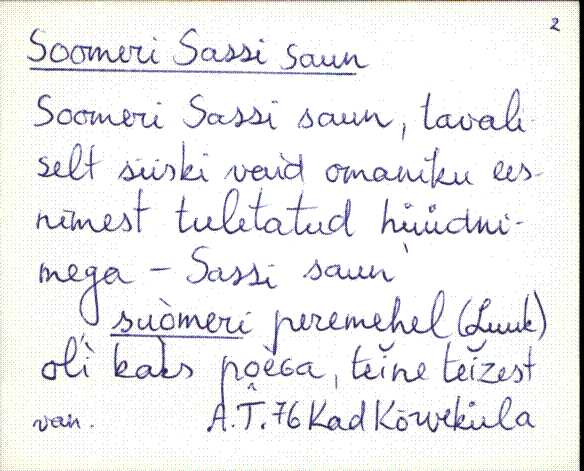 2
Soomeri Sassi saun
Soomeri Sassi saun, tavali-
selt siiski vaid omaniku ees-
nimest tuletatud hüüdni-
mega - Sassi saun
suòmeri peremehel (Luuk)
oli kaks põèGa, teine teizest
van. A.T. 76 Kad Kõrveküla